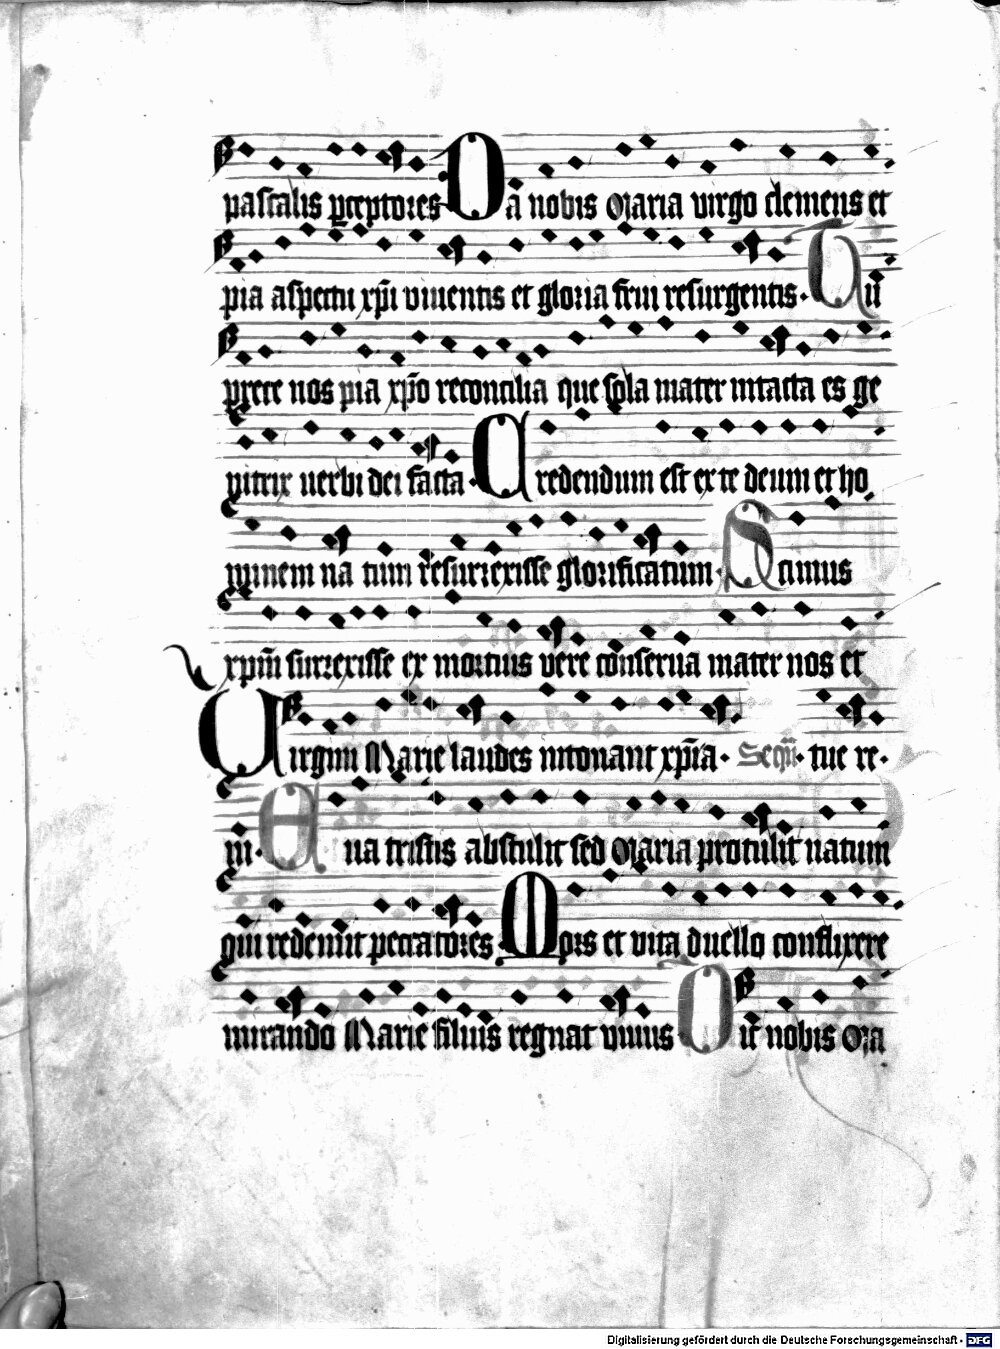 pascalis p̲ceptores Da nobis Maria virgo clemens et
pia aspectu xp̄i viuentis et gloria frui resurgentis. Tu
prece nos pia xp̄o reconcilia que sola mater intacta es ge
nitrix uerbi dei facta. Credendum est ex te deum et ho
minem na tum resurrexisse glorificatum. Scimus
xpm̄ surrexisse ex mortuis vere conserua mater nos et
Virgini Marie laudes intonant xp̄ia. Seqū. tue re.
mi. Eua tristis abstulit sed Maria protulit natum
qui redemit peccatores. Mors et vita duello conflixere
mirando Marie filius regnat viuus Dic nobis Ma
Digitalisierung gefördert durch die Deutsche Forschungsgemeinschaft - DFG